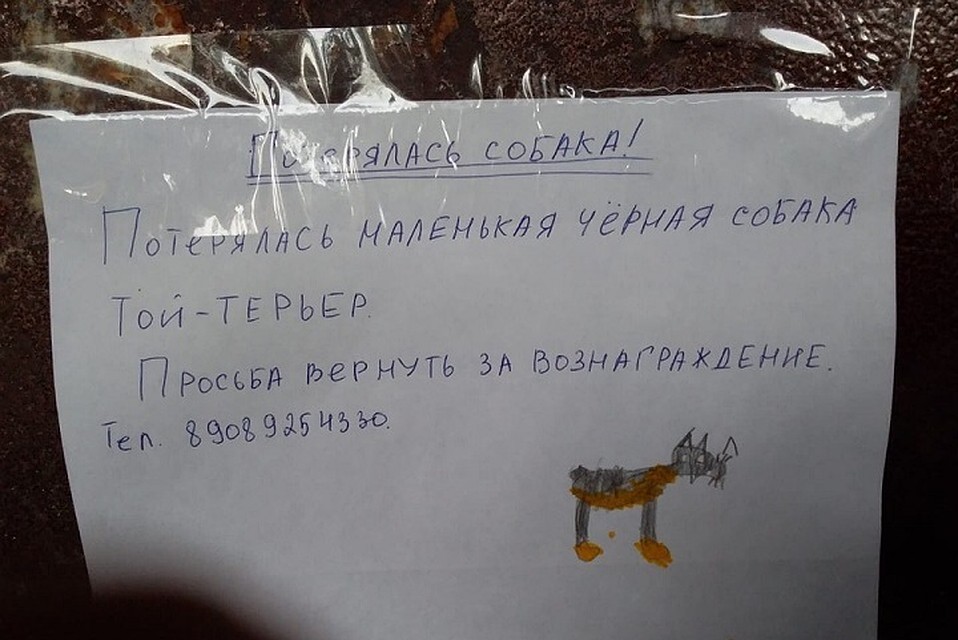 Потерялась собака!
Потерялась маленькая чёрная собака
той-терьер.
Просьба вернуть за вознаграждение.
Тел. 89089254330.